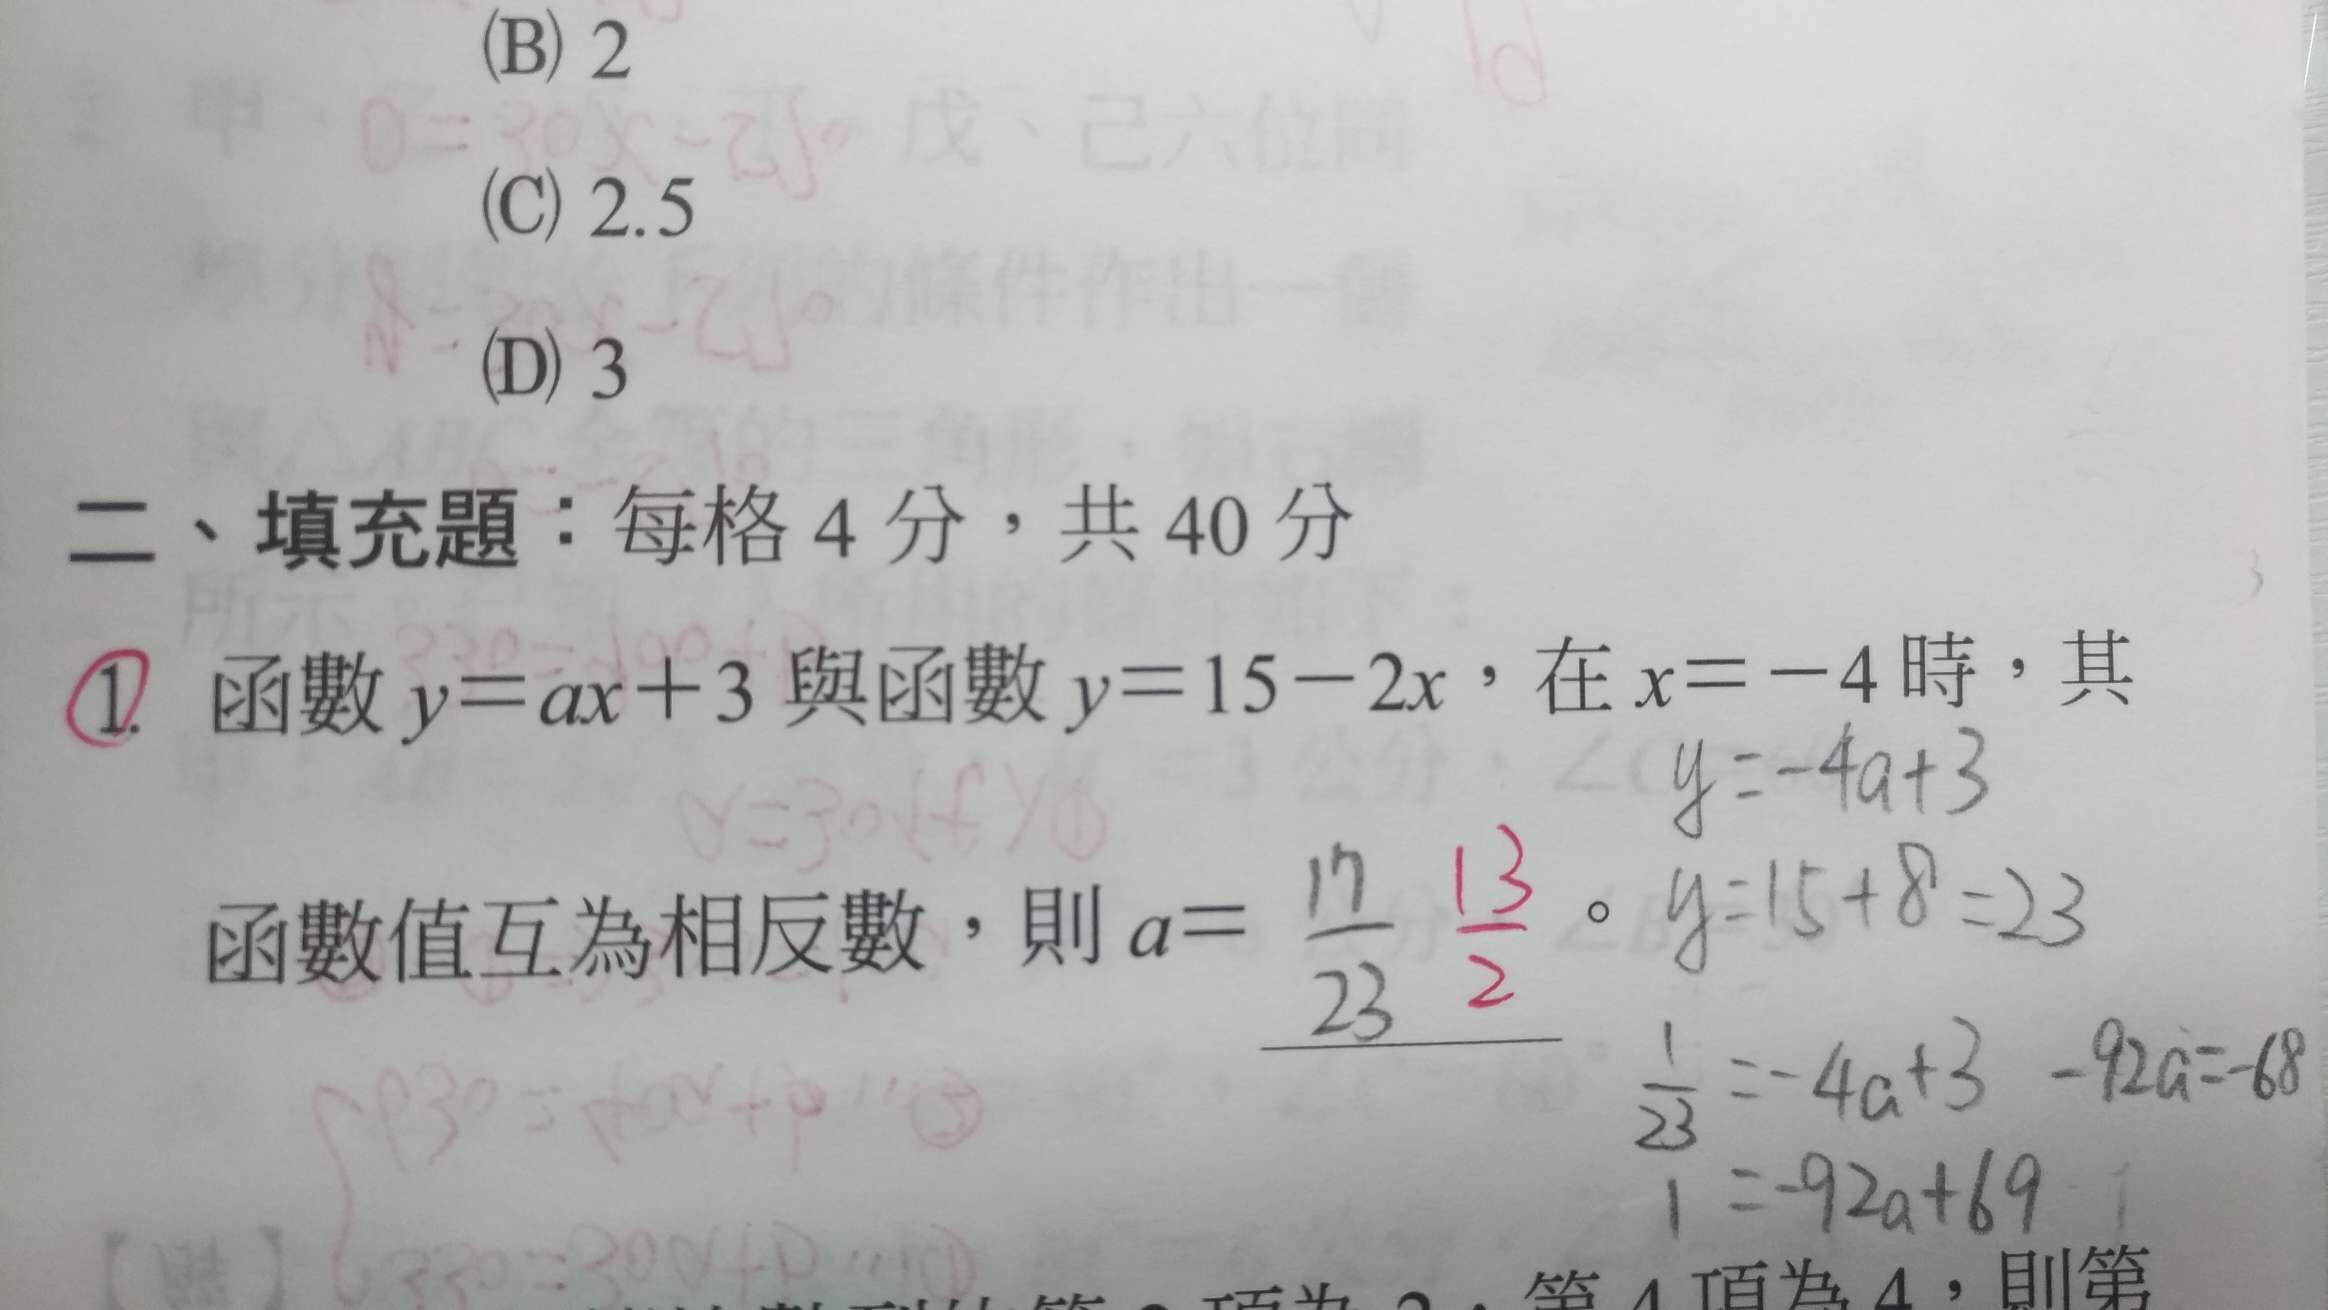 (B) 2
(C) 2.5
(D) 3
二、填充題：每格 4 分，共 40 分
1. 函數 y＝ax＋3 與函數 y＝15－2x，在 x＝－4 時，其
y=-4a+3
函數值互為相反數，則 a＝ 17/23 13/2 。
y=15+8=23
1/23=-4a+3 -92a=-68
1=-92a+69
項為 2，第 4 項為 4，則第